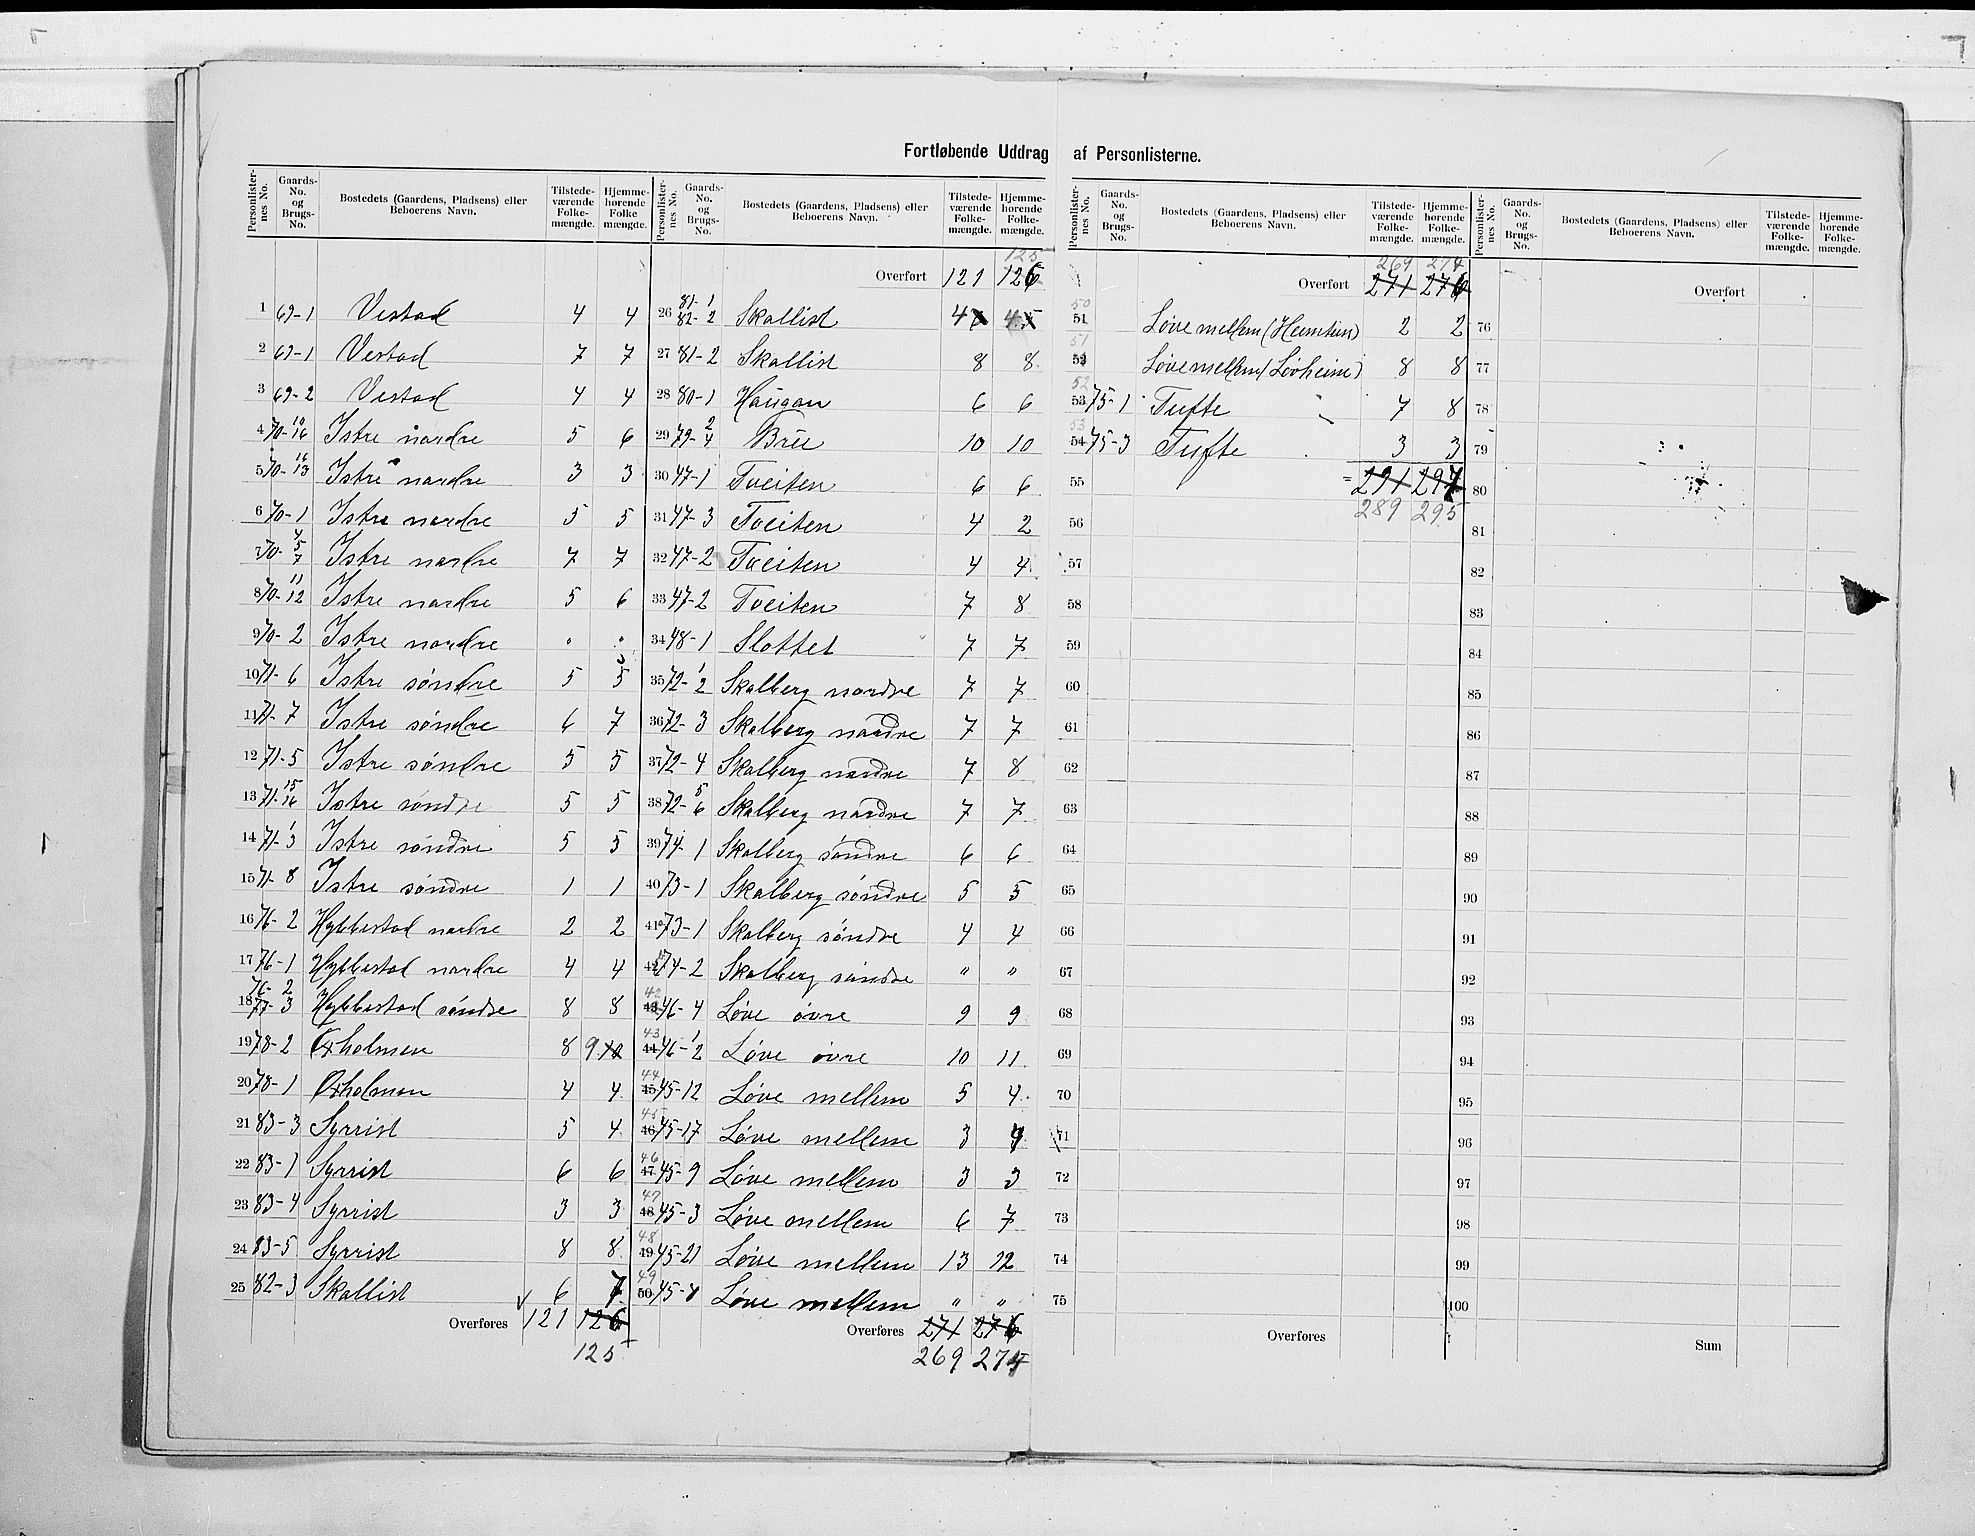 Fortløbende Uddrag af Personlisterne.
Personlister-nes No. Gaards-No. og Brugs-No. Bostedets (Gaardens, Pladsens) eller Beboerens Navn. Tilstede-værende Folke-mængde. Hjemme-hørende Folke mængde.
1 69-1 Vestad 4 4
2 69-1 Vestad 7 7
3 69-2 Vestad 4 4
4 70-10 16 Istre nordre 5 6
5 70-16 13 Istre nordre 3 3
6 70-1 Istre nordre 5 5
7 70-4 5 7 Istre nordre 7 7
8 70-11 12 Istre nordre 5 6
9 70-2 Istre nordre " "
10 71-6 Istre søndre 5 5
11 71-7 Istre søndre 6 7
12 71-5 Istre søndre 5 5
13 71-15 16 Istre søndre 5 5
14 71-1 3 Istre søndre 5 5
15 71-8 Istre søndre 1 1
16 76-2 Hybbestad nordre 2 2
17 76-1 Hybbestad nordre 4 4
18 76-2 77-3 Hybbestad søndre 8 8
19 78-2 Oxholmen 8 9 10
20 78-1 Oxholmen 4 4
21 83-3 Syrrist 5 4
22 83-1 Syrrist 6 6
23 83-4 Syrrist 3 3
24 83-5 Syrrist 8 8
25 82-3 Skallist 6 7
Overføres 121 126
125
Personlister-nes No. Gaards-No. og Brugs-No. Bostedets (Gaardens, Pladsens) eller Beboerens Navn. Tilstede-værende Folke-mængde. Hjemme-hørende Folke-mængde.
125
Overført 121 126
26 81-1 82-2 Skallist 4 4
27 81-2 Skallist 8 8
28 80-1 Haugan 6 6
29 79-2 4 Brue 10 10
30 47-1 Tveiten 6 6
31 47-3 Tveiten 4 2
32 47-2 Tveiten 4 4
33 47-2 Tveiten 7 8
34 48-1 Slottet 7 7
35 72-1 2 Skalberg nordre 7 7
36 72-3 Skalberg nordre 7 7
37 72-4 Skalberg nordre 7 8
38 72-5 6 Skalberg nordre 7 7
39 74-1 Skalberg søndre 6 6
40 73-1 Skalberg søndre 5 5
41 73-1 Skalberg søndre 4 4
42 74-2 Skalberg søndre " "
42 43 46-4 Løve øvre 9 9
43 44 46-1 2 Løve øvre 10 11
44 45 45-12 Løve mellem 5 4
45 46 45-17 Løve mellem 3
46 47 45-9 Løve mellem 3 3
47 48 45-3 Løve mellem 6 7
48 49 45-21 Løve mellem 13 12
49 50 45-4 Løve mellem " "
Overføres 271 276
269 274
Personlister-nes No. Gaards-No. og Brugs-No. Bostedets (Gaardens, Pladsens) eller Beboerens Navn. Tilstede-værende Folke-mængde. Hjemme-hørende Folke-mængde.
269 274
Overført 271 276
50 51 Løve mellem (Heimtun) 2 2
51 52 Løve mellem (Lovheim) 8 8
52 53 75-1 Tufte 7 8
53 54 75-3 Tufte 3 3
55 291 297
289 295
56
57
58
59
60
61
62
63
64
65
66
67
68
69
70
71
72
73
74
75
Overføres
Personlister-nes No. Gaards-No. og Brugs-No. Bostedets (Gaardens, Pladsens) eller Beboerens Navn. Tilstede-værende Folke-mængde. Hjemme-hørende Folke-mængde.
Overført
76
77
78
79
80
81
82
83
84
85
86
87
88
89
90
91
92
93
94
95
96
97
98
99
100
Sum